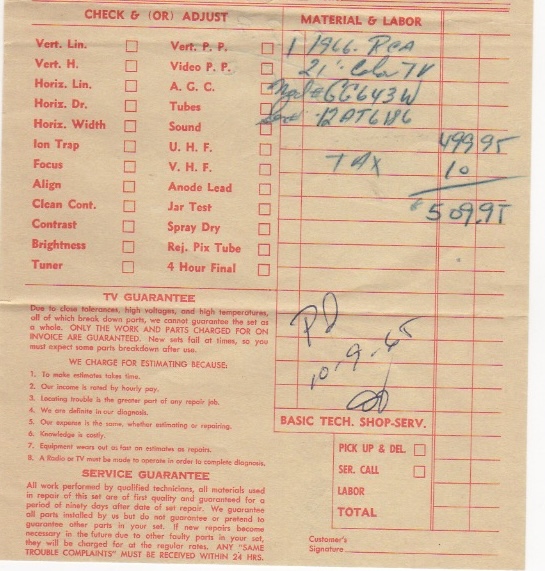 CHECK & (OR) ADJUST
MATERIAL & LABOR
Vert. Lin.
Vert. P. P.
1 1966 RCA
Vert. H.
Video P. P.
21" Color TV
Horiz. Lin.
A. G. C.
GG643W
Horiz. Dr.
Tubes
12AT6186
Horiz. Width
Sound
499.95
Ion Trap
U. H. F.
TAX 10
Focus
V. H. F.
Align
Anode Lead
$509.95
Clean Cont.
Jar Test
Contrast
Spray Dry
Brightness
Rej. Pix Tube
Tuner
4 Hour Final
TV GUARANTEE
Due to close tolerances, high voltages, and high temperatures,
all of which break down parts, we cannot guarantee the set as
a whole. ONLY THE WORK AND PARTS CHARGED FOR ON
INVOICE ARE GUARANTEED. New sets fail at times, so you
must expect some parts breakdown after use.
WE CHARGE FOR ESTIMATING BECAUSE:
1. To make estimates takes time.
2. Our income is rated by hourly pay.
3. Locating trouble is the greater part of any repair job.
4. We are definite in our diagnosis.
5. Our expense is the same, whether estimating or repairing.
6. Knowledge is costly.
7. Equipment wears out as fast on estimates as repairs.
8. A Radio or TV must be made to operate in order to complete diagnosis.
SERVICE GUARANTEE
All work performed by qualified technicians, all materials used
in repair of this set are of first quality and guaranteed for a
period of ninety days after date of set repair. We guarantee
all parts installed by us but do not guarantee or pretend to
guarantee other parts in your set. If new repairs become
necessary in the future due to other faulty parts in your set,
they will be charged for at the regular rates. ANY "SAME
TROUBLE COMPLAINTS" MUST BE RECEIVED WITHIN 24 HRS.
PD
10-9-65
BASIC TECH. SHOP-SERV.
PICK UP & DEL.
SER. CALL
LABOR
TOTAL
Customer's
Signature